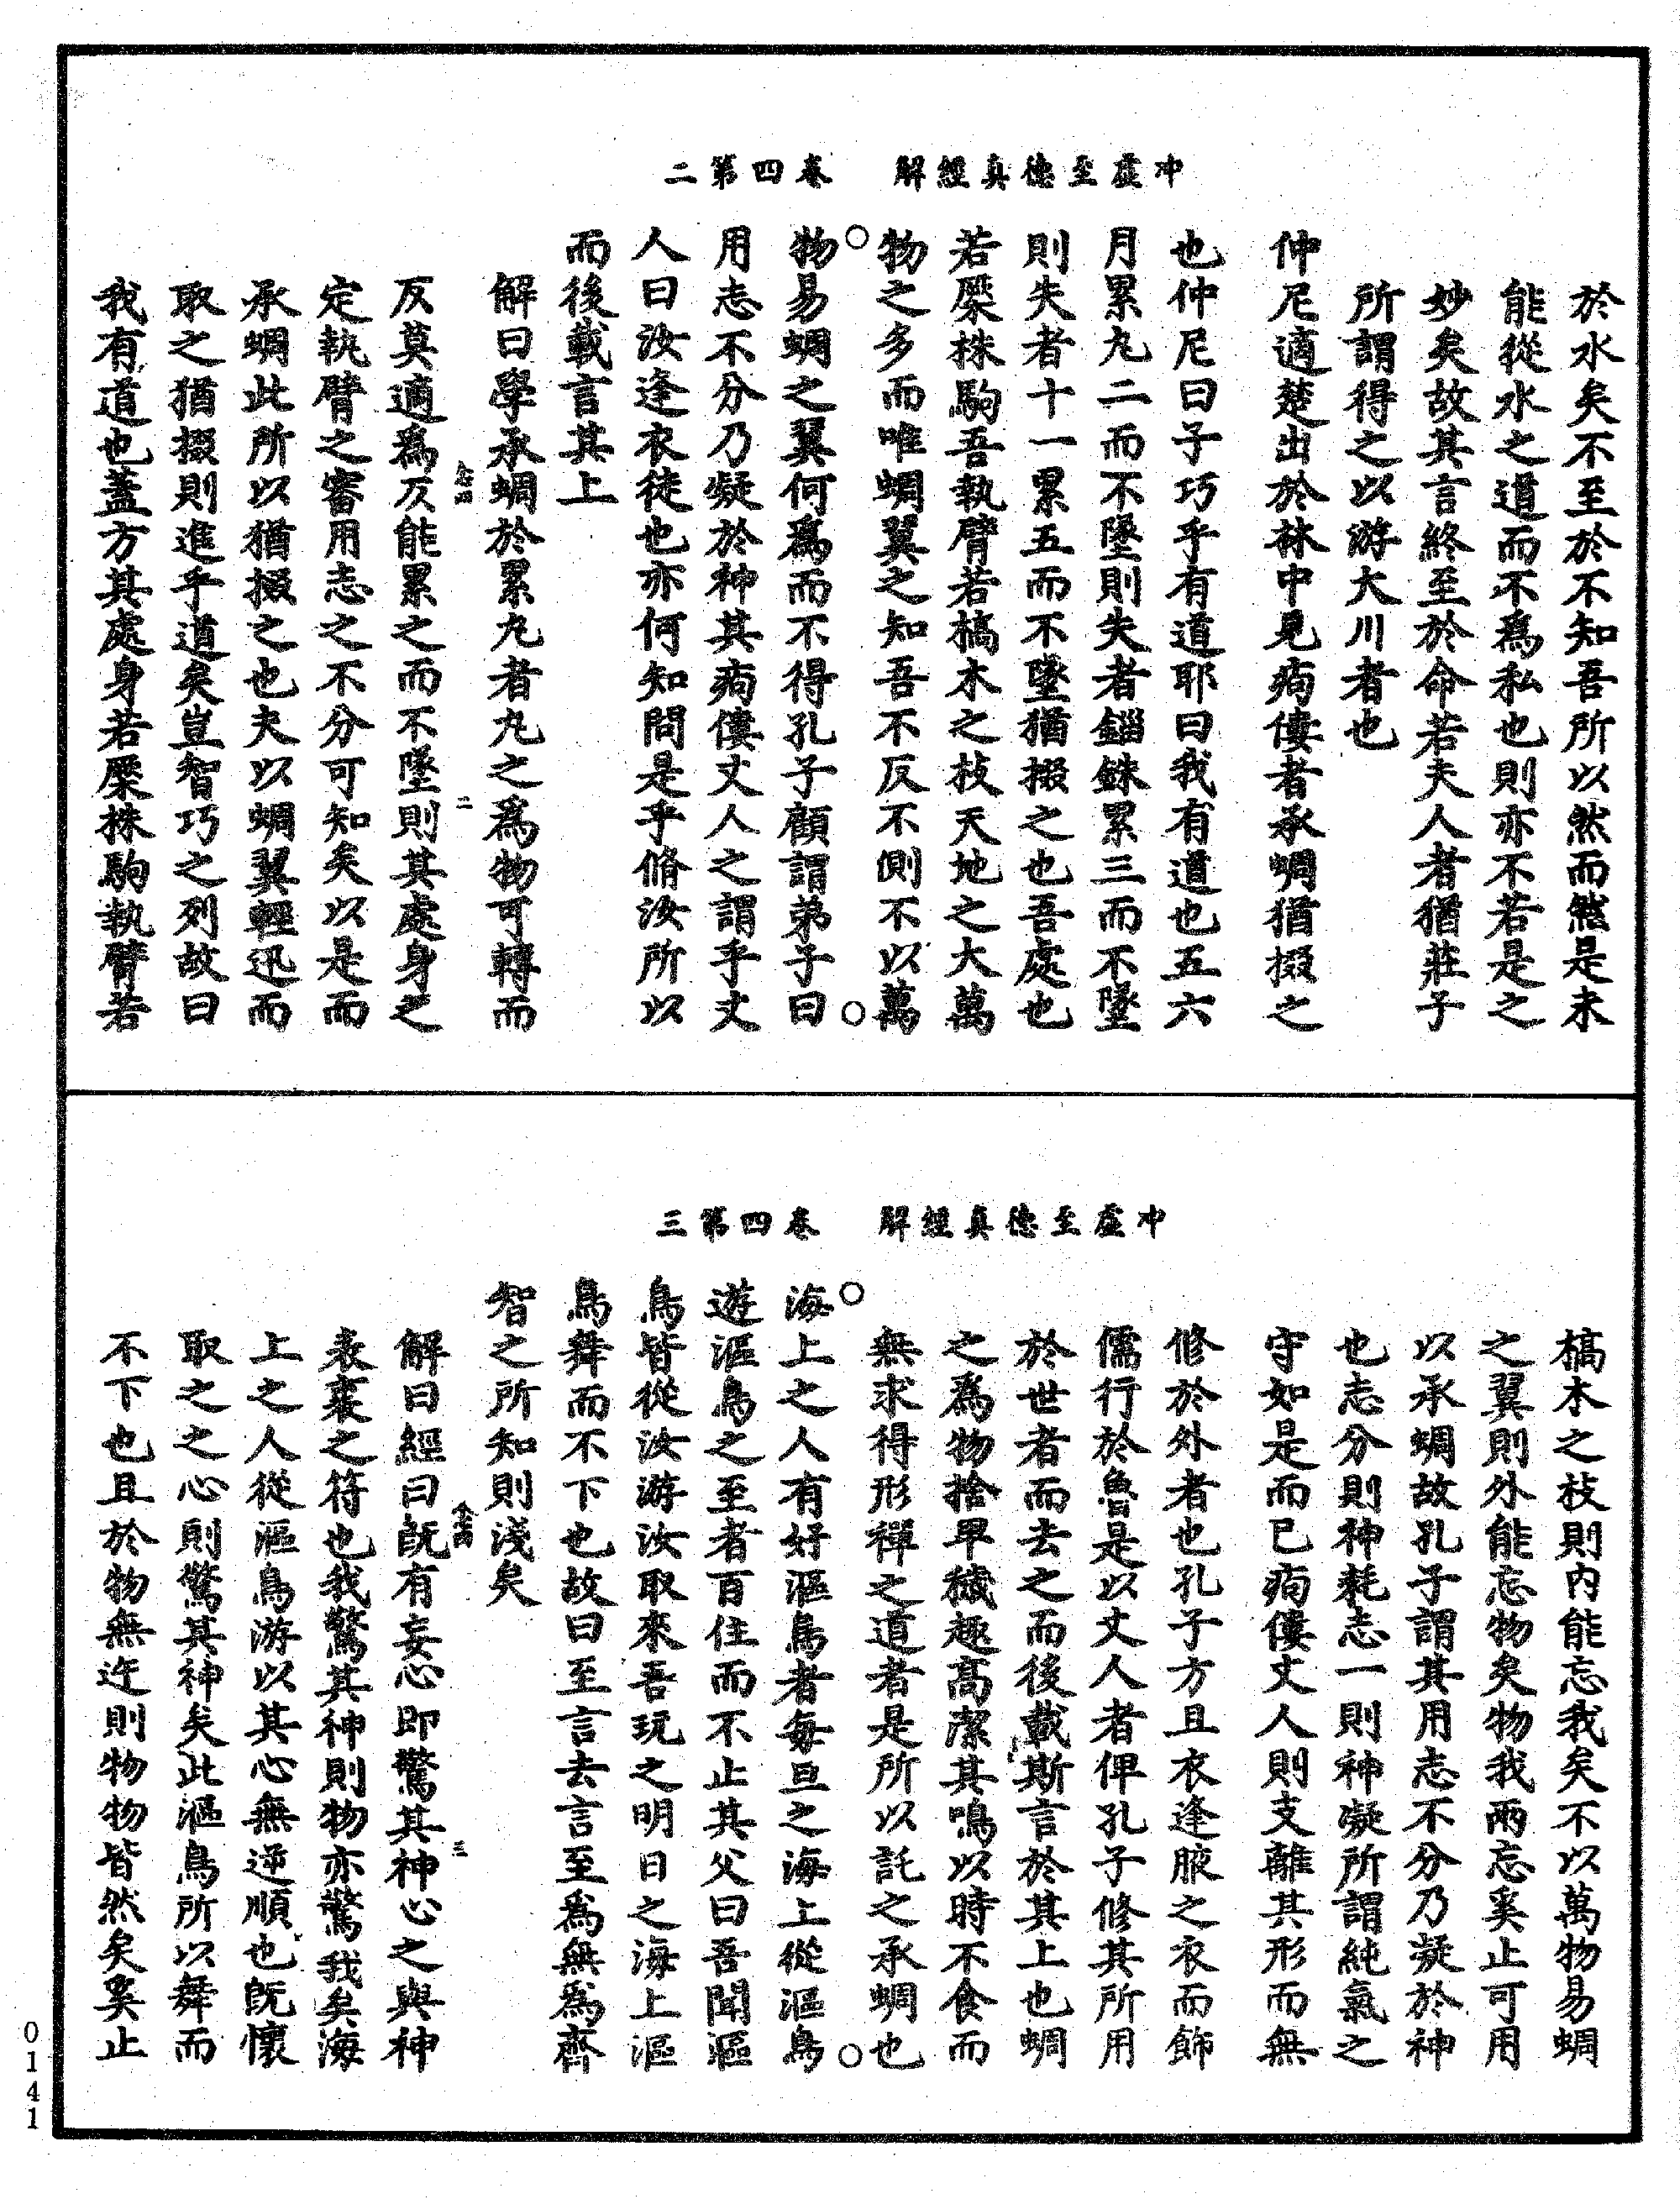 冲虛至德真經解　卷四第二
於水矣不至於不知吾所以然而然是未
能從水之道而不爲私也則亦不若是之
妙矣故其言終至於命若夫人者猶莊子
所謂得之以游大川者也
仲尼適楚出於林中見痀僂者承蜩猶掇之
也仲尼曰子巧乎有道耶曰我有道也五六
月累丸二而不墜則失者錙銖累三而不墜
則失者十一累五而不墜猶掇之也吾處也
若橜株駒吾執臂若槁木之枝天地之大萬
物之多而唯蜩翼之知吾不反不側不以萬
○物易蜩之翼何爲而不得孔子顧謂弟子曰○
用志不分乃凝於神其痀僂丈人之謂乎丈
人曰汝逢衣徒也亦何知問是乎脩汝所以
而後載言其上
解曰學承蜩於累丸者丸之爲物可轉而
反莫適爲反能累之而不墜則其處身之
定執臂之審用志之不分可知矣以是而
承蜩此所以猶掇之也夫以蜩翼輕迅而
取之猶掇則進乎道矣豈智巧之列故曰
我有道也蓋方其處身若橜株駒執臂若
二
冲虛至德真經解　卷四第三
槁木之枝則内能忘我矣不以萬物易蜩
之翼則外能忘物矣物我兩忘奚止可用
以承蜩故孔子謂其用志不分乃凝於神
也志分則神耗志一則神凝所謂純氣之
守如是而已痀僂丈人則支離其形而無
修於外者也孔子方且衣逢腋之衣而飾
儒行於魯是以丈人者俾孔子修其所用
於世者而去之而後載斯言於其上也蜩
之爲物捨卑穢趣高潔其鳴以時不食而
無求得形禪之道者是所以託之承蜩也
○海上之人有好漚鳥者每旦之海上從漚鳥○
遊漚鳥之至者百住而不止其父曰吾聞漚
鳥皆從汝游汝取來吾玩之明日之海上漚
鳥舞而不下也故曰至言去言至爲無爲齊
智之所知則淺矣
解曰經曰既有妄心即驚其神心之與神
表裏之符也我驚其神則物亦驚我矣海
上之人從漚鳥游以其心無逆順也既懷
取之之心則驚其神矣此漚鳥所以舞而
不下也且於物無迕則物物皆然矣奚止
三
0141